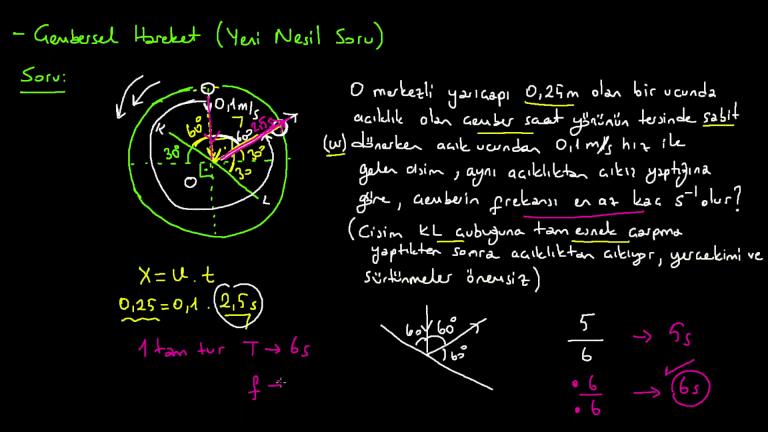 - Çembersel Hareket (Yeni Nesil Soru)
Soru:
O merkezli yarıçapı 0,25m olan bir ucunda
açıklık olan çember saat yönünün tersinde sabit
(w) dönerken açık ucundan 0,1 m/s hız ile
gelen cisim, aynı açıklıktan çıkış yaptığına
göre, çemberin frekansı en az kaç s⁻¹ olur?
(Cisim KL çubuğuna tam esnek çarpma
yaptıkten sonra açıklıktan çıkıyor, yerçekimi ve
sürtünmeler önemsiz)
0,1m/s
K
60°
60°
2,5s
30°
30°
30
O
L
X = v . t
0,25 = 0,1 . 2,5s
1 tam tur T → 6s
f →
60 60°
60°
5/6 → 5s
6/6 → 6s